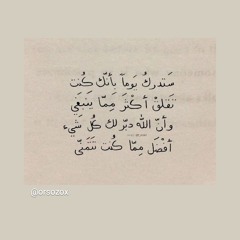 سَتدركُ يَوماً بأنّك كُنت
تقلقْ أكْثَر مِمّا يَنبَغي
وأنّ الله دبّر لك كُل شَيء
أفضَل مِمّا كُنت تَتَمنّى